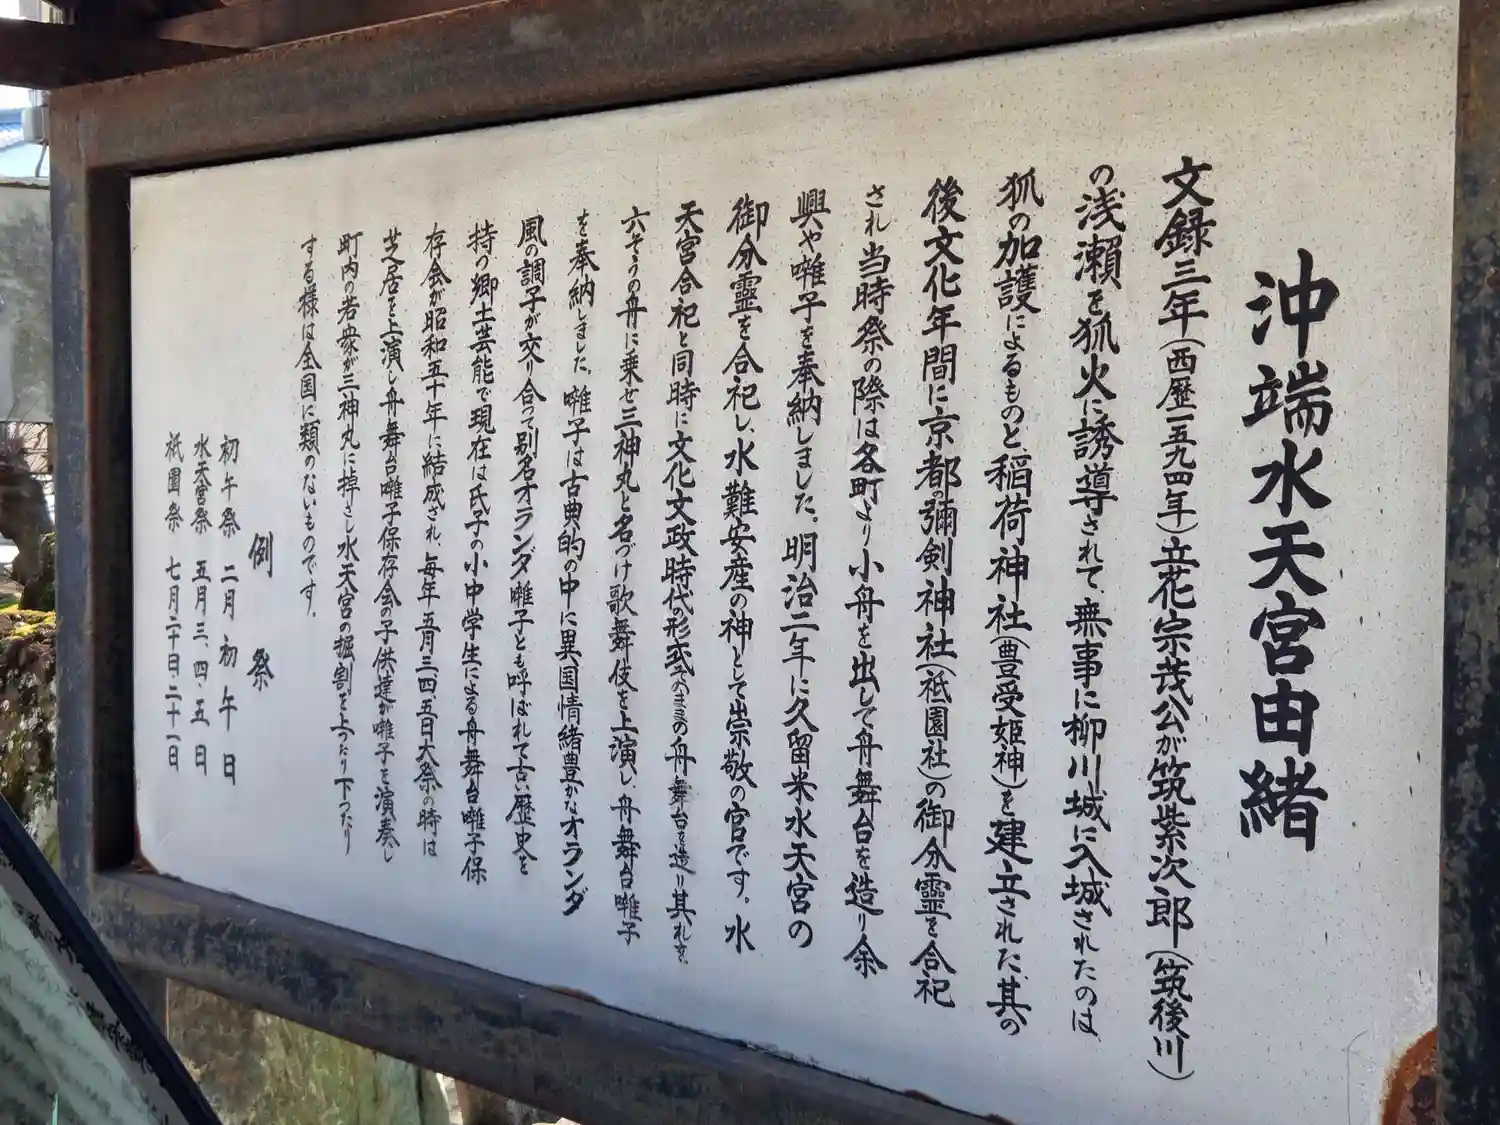 沖端水天宮由緒
文録三年(西歴一五九四年)立花宗茂公が筑紫次郎(筑後川)
の浅瀬を狐火に誘導されて、無事に柳川城に入城されたのは
狐の加護によるものと、稲荷神社(豊受姫神)を建立された、其の
後文化年間に京都の彌剣神社(祇園社)の御分霊を合祀
され当時祭の際は各町より小舟を出して舟舞台を造り余
興や囃子を奉納しました。明治二年に久留米水天宮の
御分霊を合祀し、水難安産の神として崇敬の宮です。水
天宮合祀と同時に文化文政時代の形式そのままの舟舞台を造り其れを、
六そうの舟に乗せ三神丸と名づけ歌舞伎を上演し、舟舞台囃子
を奉納しました。囃子は古典的の中に異国情緒豊かなオランダ
風の調子が交り合って別名オランダ囃子とも呼ばれて古い歴史を
持つ郷土芸能で現在は氏子の小中学生による舟舞台囃子保
存会が昭和五十年に結成され、毎年五月三、四、五日大祭の時は
芝居を上演し舟舞台囃子保存会の子供達が囃子を演奏し
町内の若衆が三神丸に棹さし水天宮の掘割を上ったり下ったり
する様は全国に類のないものです。
例祭
初午祭 二月初午日
水天宮祭 五月三、四、五日
祇園祭 七月二十日、二十一日